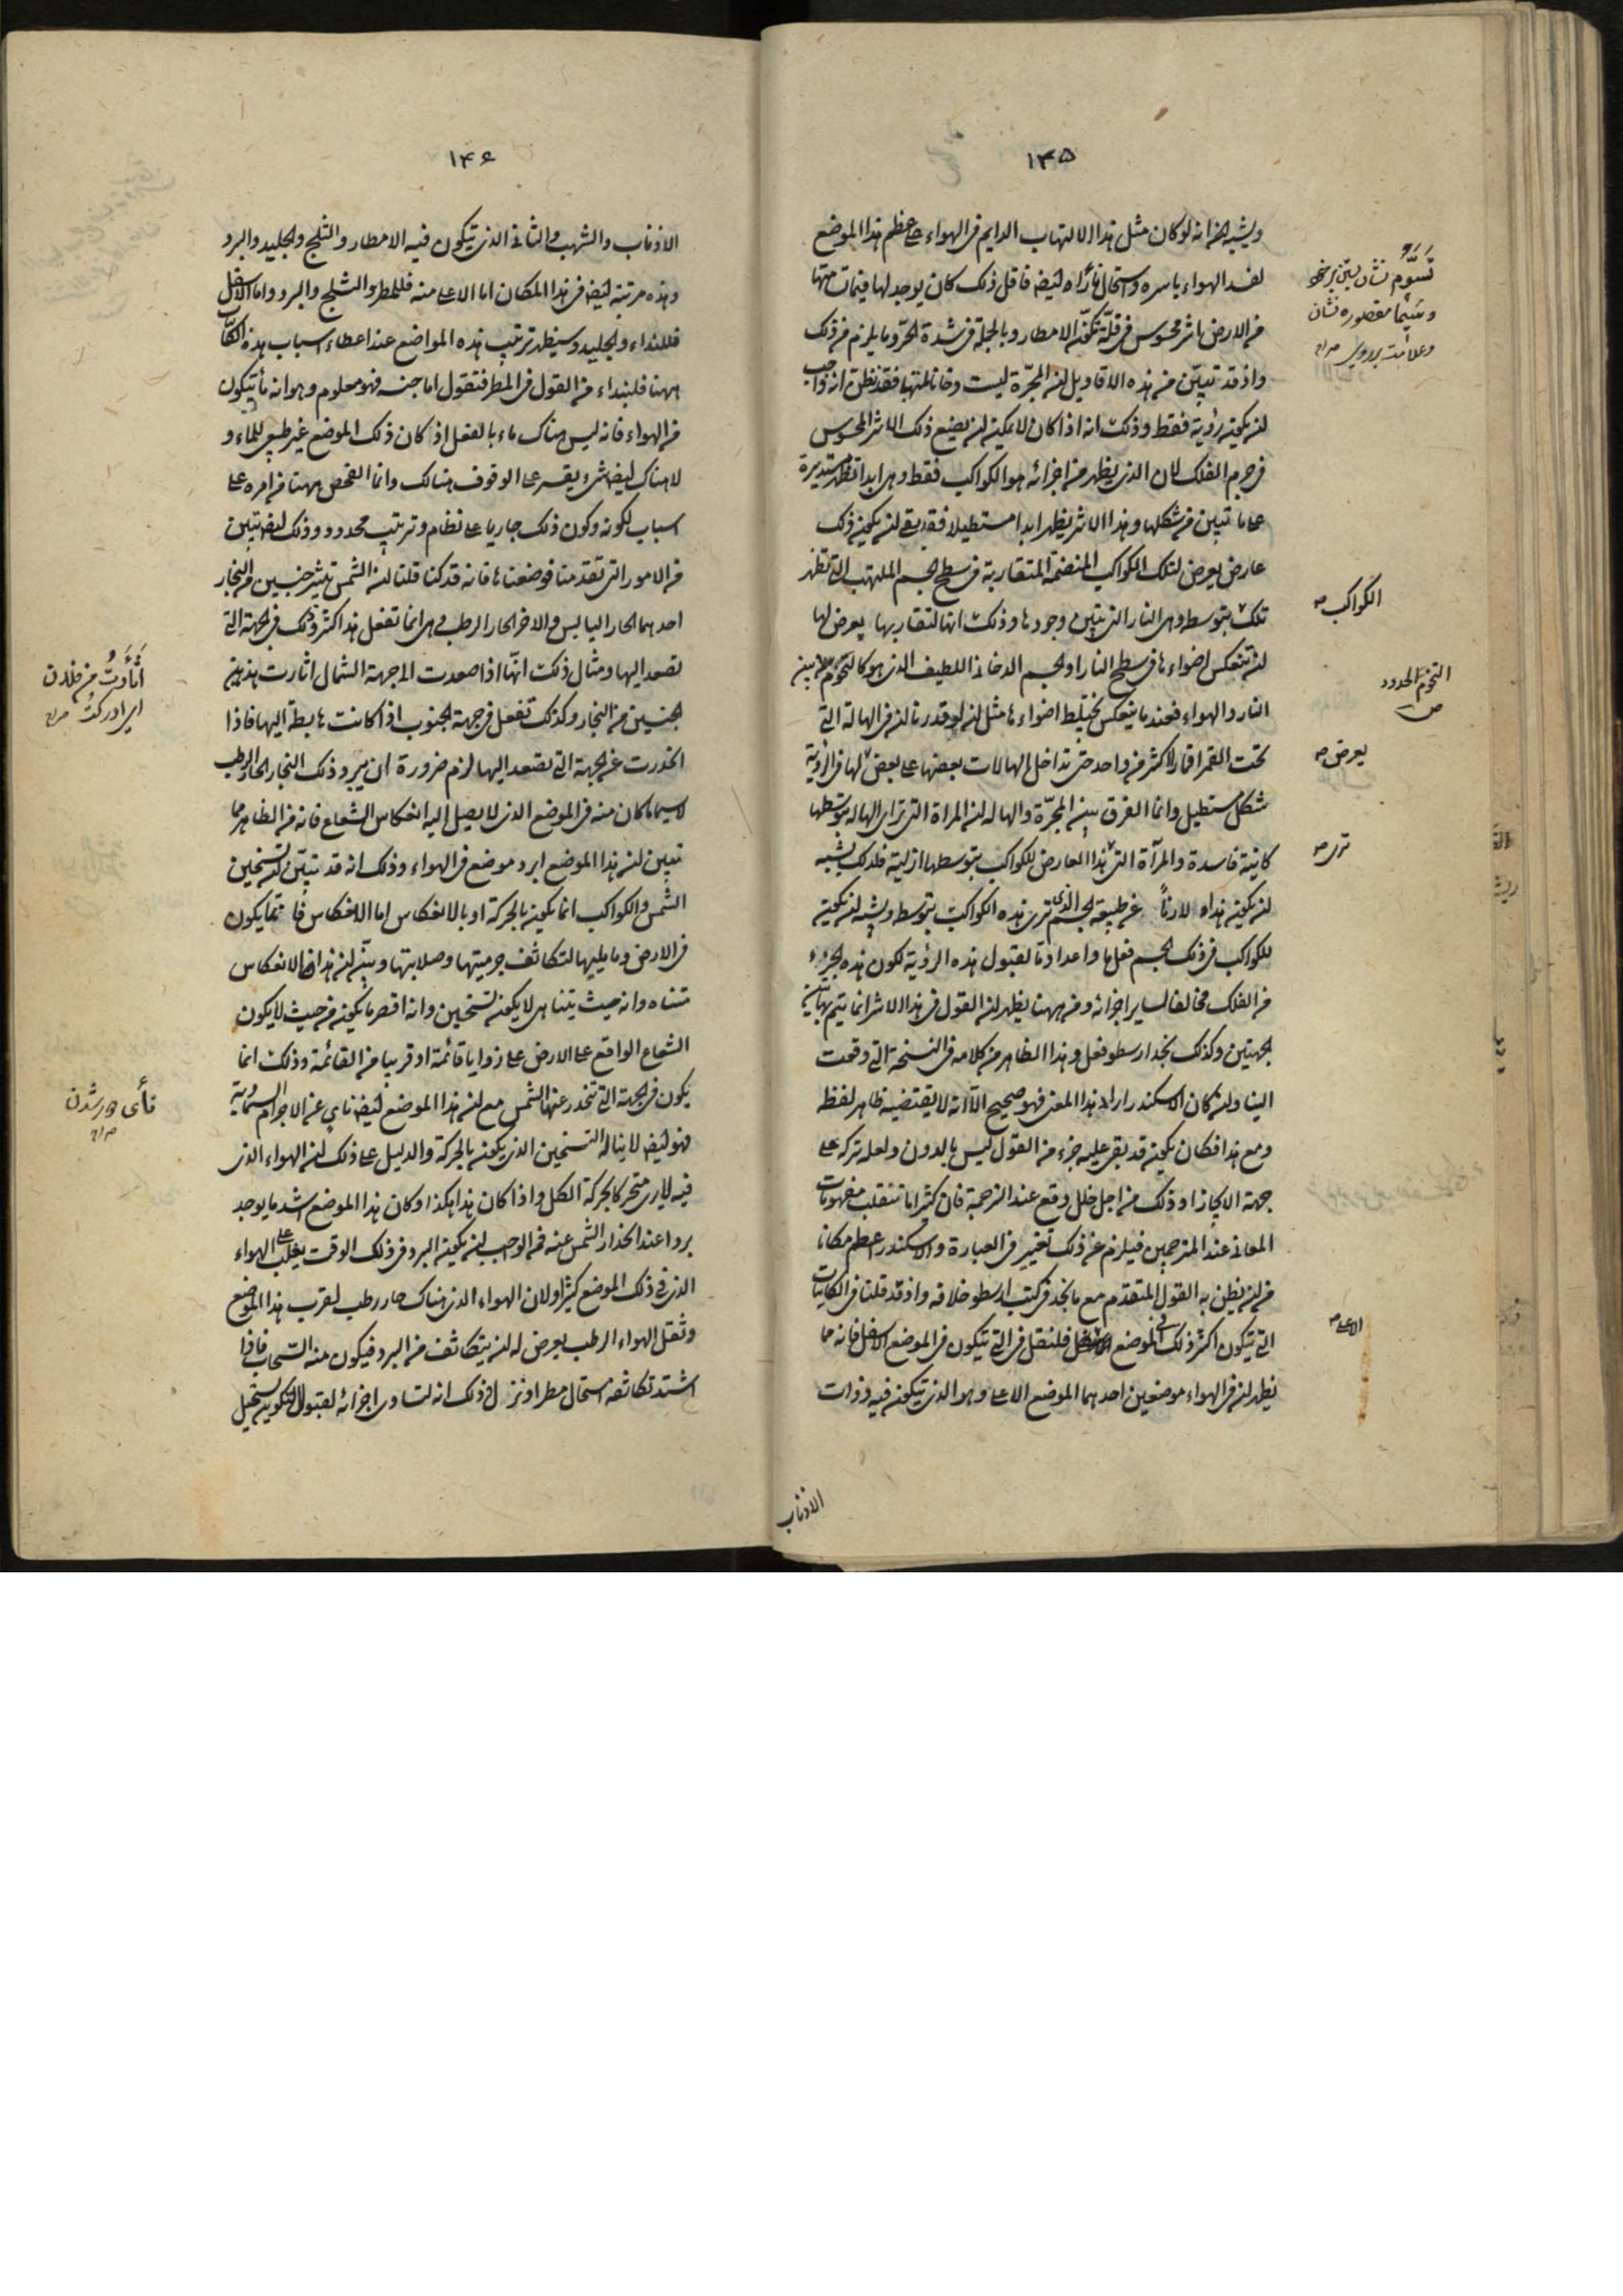 ۱۴۵
ويشبه ايضا انه لو كان مثل هذا الالتهاب الدايم فى الهواء على عظم هذا الموضع
لفسد الهواء باسره واستحال نارا و ايضا فاقل ذلك كان يوجد لها فيمات تحتها
من الارض تاثر محسوس فى قلة تكون الامطار وبالجملة فى شدة الحر وما يلزم من ذلك
واذ قد تبين من هذه الاقاويل ان المجرة ليست دخانا ملتهبا فقد نظن انه واجب
ان يكون رؤية فقط وذلك انه اذا كان لا يمكن ان يضع ذلك الاثر المحسوس
فى جرم الفلك لان الذى يظهر من اجزائه هو الكواكب فقط وهى ابدا تظهر مستديرة
على ما تبين من شكلها وهذا الاثر يظهر ابدا مستطيلا فقد بقى ان يكون ذلك
عارض يعرض لتلك الكواكب المنضمة المتقاربة فى سطح الجسم الملتهب التى تظهر
تلك بتوسطه وهى النار التى تبين وجودها وذلك انها لتقاربها يعرض لها
ان تنعكس اضواءها فى سطح النار او الجسم الدخانى اللطيف الذى هو كالتخوم بين
النار والهواء فعندما ينعكس يختلط اضواءها مثل ان لو قدرنا ان فى الهالة التى
تحت القمر اقمارا اكثر من واحد حتى تداخل الهالات بعضها على بعض لها فى الرؤية
شكل مستطيل وانما الفرق بين المجرة والهالة ان المراة التى ترى الهالة بتوسطها
كائنة فاسدة والمرآة التى هذا العارض للكواكب بتوسطها ازلية فلذلك يشبه
ان يكون هذا لازما عن طبيعة الجسم الذى ترى هذه الكواكب بتوسطه ويشبه ان يكون
للكواكب فى ذلك الجسم فعل ما واعدادنا لقبول هذه الرؤية لكون هذه الجزء
من الفلك مخالفا لساير اجزائه ومن ههنا يظهر ان القول فى هذا الاثر انما يتم بهاتين
الجهتين وكذلك نجد ارسطو فعل وهذا الظاهر من كلامه فى النسخة التى وقعت
الينا وان كان الاسكندر اراد هذا المعنى فهو صحيح الا انه لا يقتضيه ظاهر لفظه
ومع هذا فكان يكون قد بقى عليه جزء من القول ليس بالدون ولعله تركه على
جهة الايجاز او ذلك من اجل خلل وقع عند الترجمة فان كثيرا ما تنقلب مفهومات
المعانى عند المترجمين فيلزم عن ذلك تغيير فى العبارة والاسكندر اعظم مكانا
من ان يظن به القول المتقدم مع ما نجد فى كتب ارسطو خلافه واذ قد قلنا فى الكائنات
التى تتكون اكثر ذلك فى الموضع فلنقل فى التى تتكون فى الموضع الاسفل فانه مما
يظهر ان فى الهواء موضعين احدهما الموضع الاعلى وهو الذى تتكون فيه ذوات
الاذناب
تسوم نشان
وسيما مقصوره نشان
وعلامت
الكواكب صح
التخوم الحدود
ص
يعرض صح
ترى صح
الاعلى صح
۱۴۶
الاذناب والشهب والثانى الذى يتكون فيه الامطار والثلج والجليد والبرد
وهذه مرتبة ايضا فى هذا المكان اما الاعلى منه فللمطر والثلج والبرد واما الاسفل
فللنداء والجليد وسيظهر ترتيب هذه المواضع عند اعطاء اسباب هذه
ههنا فلنبداء من القول فى المطر فنقول اما جنسه فهو معلوم وهو انه ماء يتكون
من الهواء فانه ليس هناك ماء بالفعل اذ كان ذلك الموضع غير طبيعى للماء و
لا هناك ايضا شىء يقسره على الوقوف هنالك وانما الفحص ههنا من امره على
اسباب تكونه وكون ذلك جاريا على نظام وترتيب محدود وذلك ايضا تبين
من الامور التى تقدمنا فوضعناها فانه قد كنا قلنا ان الشمس تثير جنسين من البخار
احدهما الحار اليابس والاخر الحار الرطب وهى انما تفعل هذا اكثر ذلك فى الجهة التى
تصعد اليها ومثال ذلك انها اذا صعدت الى جهة الشمال اثارت هذين
الجنسين من البخار وكذلك تفعل فى جهة الجنوب اذا كانت هابطة اليها فاذا
انحدرت عن الجهة التى تصعد اليها لزم ضرورة ان يبرد ذلك البخار الحار الرطب
لاسيما ما كان منه فى الموضع الذى لا يصل اليه انعكاس الشعاع فانه من الظاهر مما
تبين ان هذا الموضع ابرد موضع فى الهواء وذلك انه قد تبين ان تسخين
الشمس والكواكب انما يكون بالحركة او بالانعكاس اما الانعكاس فانما يكون
فى الارض وما يليها لتكاثف جرميتها وصلابتها وبين ان هذا الانعكاس
متناه وانه حيث يتناهى لا يكون تسخين وانه اقصر ما يكون من حيث لا يكون
الشعاع الواقع على الارض على زوايا قائمة او قريبا من القائمة وذلك انما
يكون فى الجهة التى تنحدر عنها الشمس مع ان هذا الموضع ايضا ناى عن الاجرام السماوية
فهو ايضا لا يناله التسخين الذى يكون بالحركة والدليل على ذلك ان الهواء الذى
فيه لا يرى متحركا بحركة الكل واذا كان هذا هكذا وكان هذا الموضع اشد ما يوجد
بردا عند انحدار الشمس عنه فمن الواجب ان يكون البرد فى ذلك الوقت يغلب على الهواء
الذى فى ذلك الموضع كثيرا ولان الهواء الذى هناك حار رطب لقرب هذا الموضع
وثقل الهواء الرطب يعرض له ان يتكاثف من البرد فيكون منه السحاب فاذا
اشتد تكاثفه استحال مطرا ونزل وذلك انه لتساوى اجزائه لقبول التكوين يستحيل
اى ادركت
نأى دور شدن